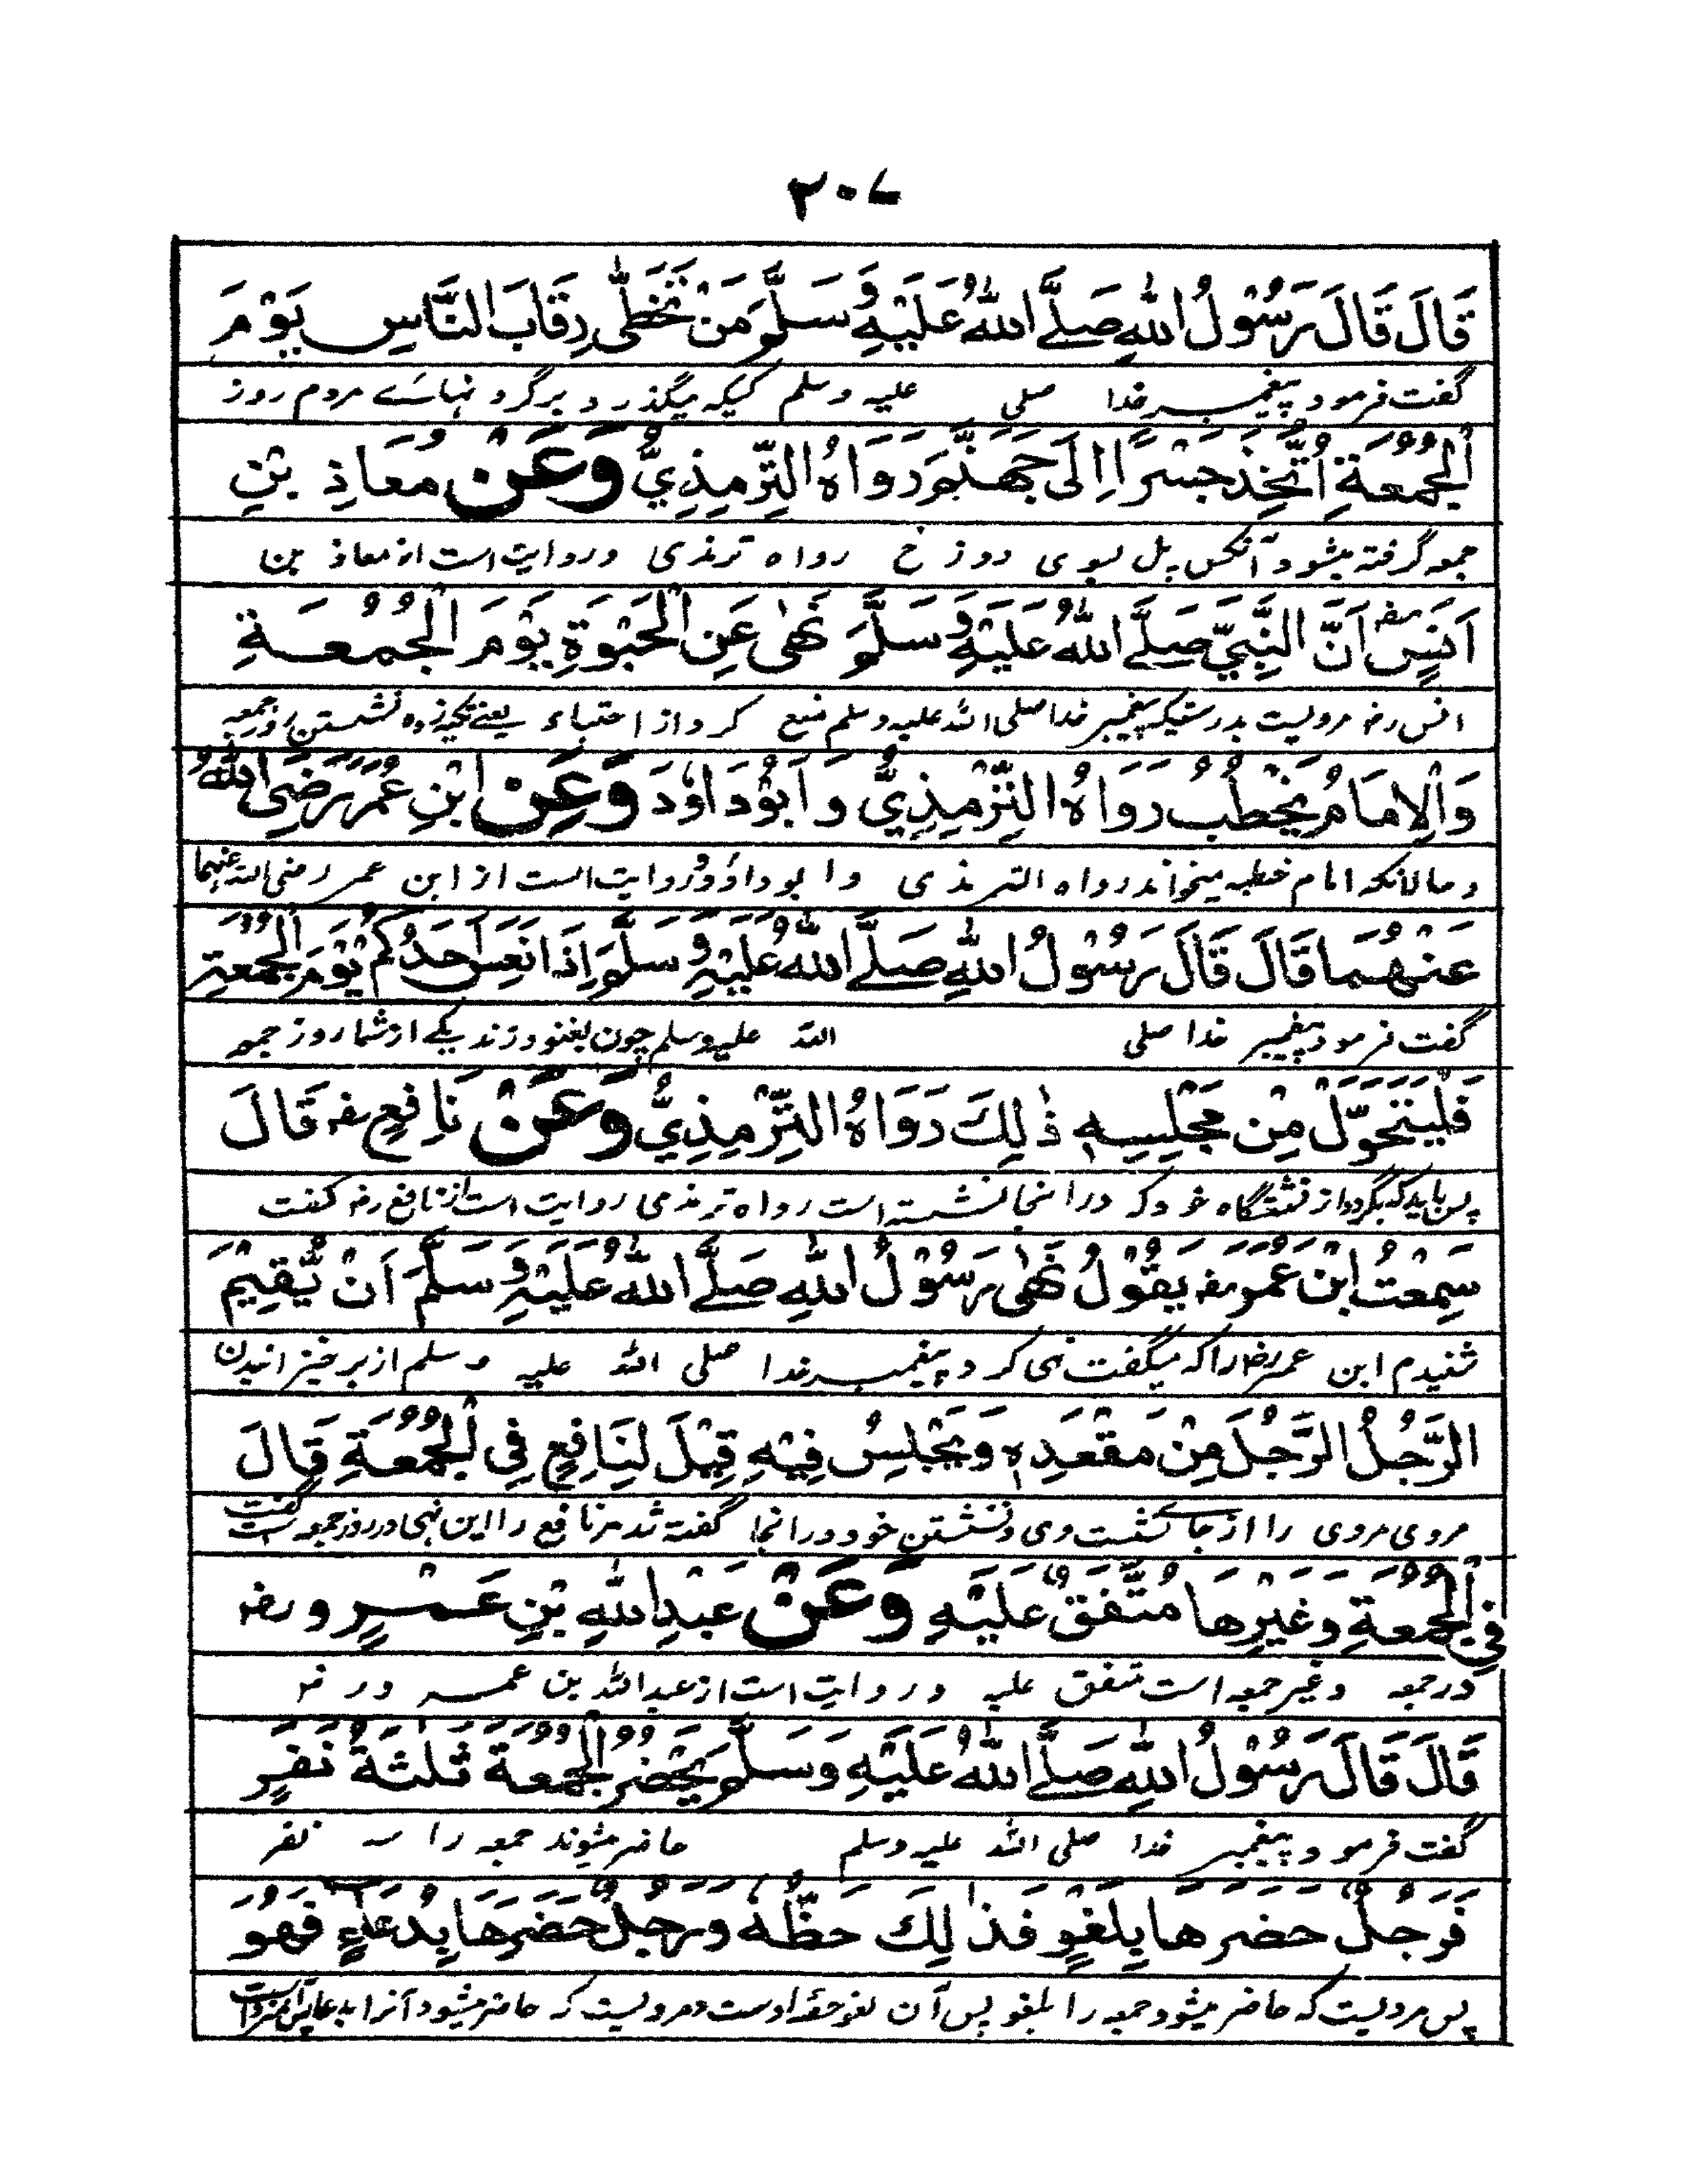 ٢٠٧
قَالَ قَالَ رَسُوْلُ اللّٰهِ صَلَّے اللّٰهُ عَلَيْهِ وَسَلَّمَ مَنْ تَخَطّٰى رِقَابَ النَّاسِ يَوْمَ
گفت فرمود پیغمبر خدا صلی علیه وسلم کسیکه میگذرد برگردنهاے مردم روز
الْجُمُعَةِ اُتُّخِذَ جَسْرًا اِلَى جَهَنَّمَ رَوَاهُ التِّرْمِذِيُّ وَعَنْ مُعَاذِ بْنِ
جمعه گرفته میشود آنکس پل بسوی دوزخ رواه ترمذی وروایت است از معاذ بن
اَنَسٍ رضـ اَنَّ النَّبِيَّ صَلَّے اللّٰهُ عَلَيْهِ وَسَلَّمَ نَهٰى عَنِ الْحَبْوَةِ يَوْمَ الْجُمُعَةِ
انس رضـ مرویست بدرستیکه پیغمبر خدا صلی الله علیه وسلم منع کرد از احتباء یعنے تکیه زده نشستن روز جمعه
وَالْاِمَامُ يَخْطُبُ رَوَاهُ التِّرْمِذِيُّ وَاَبُوْدَاوٗدَ وَعَنِ ابْنِ عُمَرَ رَضِىَ اللّٰهُ
وحالانکه امام خطبه میخواند رواه الترمذی وابوداؤد وروایت است از ابن عمر رضی الله عنهما
عَنْهُمَا قَالَ قَالَ رَسُوْلُ اللّٰهِ صَلَّے اللّٰهُ عَلَيْهِ وَسَلَّمَ اِذَا نَعَسَ اَحَدُكُمْ يَوْمَ الْجُمُعَةِ
گفت فرمود پیغمبر خدا صلی الله علیه وسلم چون بغنودزند یکے از شما روز جمعه
فَلْيَتَحَوَّلْ مِنْ مَجْلِسِهٖ ذٰلِكَ رَوَاهُ التِّرْمِذِيُّ وَعَنْ نَافِعٍ رضـ قَالَ
پس باید که بگردد از نشستگاه خود که درانجا نشسته است رواه ترمذی روایت است از نافع رضـ گفت
سَمِعْتُ ابْنَ عُمَرَ رضـ يَقُوْلُ نَهٰى رَسُوْلُ اللّٰهِ صَلَّے اللّٰهُ عَلَيْهِ وَسَلَّمَ اَنْ يُّقِيْمَ
شنیدم ابن عمر رضـ را که میگفت نهی کرد پیغمبر خدا صلی الله علیه وسلم از برخیزانیدن
الرَّجُلُ الرَّجُلَ مِنْ مَقْعَدِهٖ وَيَجْلِسُ فِيْهِ قِيْلَ لِنَافِعٍ فِي الْجُمُعَةِ قَالَ
مردی مردی را از جاے نشست وی ونشستن خود درانجا گفته شد مرنافع را این نهی در روز جمعه است گفت
فِي الْجُمُعَةِ وَغَيْرِهَا مُتَّفَقٌ عَلَيْهِ وَعَنْ عَبْدِ اللّٰهِ بْنِ عَمْرٍو رضـ
درجمعه وغیر جمعه است متفق علیه وروایت است از عبدالله بن عمرو رضـ
قَالَ قَالَ رَسُوْلُ اللّٰهِ صَلَّے اللّٰهُ عَلَيْهِ وَسَلَّمَ يَحْضُرُ الْجُمُعَةَ ثَلٰثَةُ نَفَرٍ
گفت فرمود پیغمبر خدا صلی الله علیه وسلم حاضر میشوند جمعه را سه نفر
فَرَجُلٌ حَضَرَهَا بِلَغْوٍ فَذٰلِكَ حَظُّهٗ وَرَجُلٌ حَضَرَهَا بِدُعَاءٍ فَهُوَ
پس مردیست که حاضر میشود جمعه را بلغو پس آن لغو حظ اوست ومردیست که حاضر میشود آنرا بدعا پس